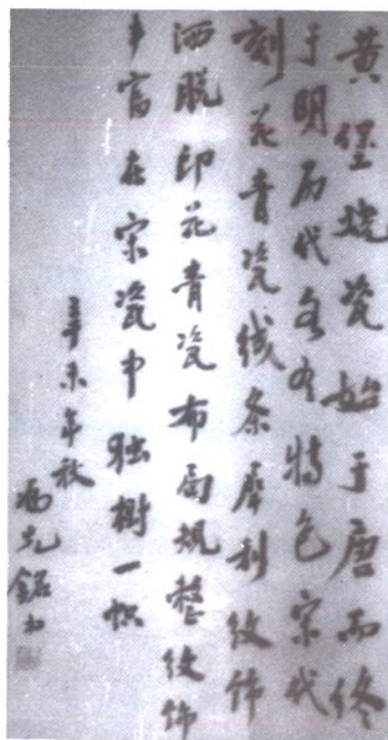 黄堡烧瓷始于唐而终
于明历代各有特色宋代
刻花青瓷线条犀利纹饰
洒脱印花青瓷布局规整纹饰
丰富在宋瓷中独树一帜
辛未年秋
冯先铭书